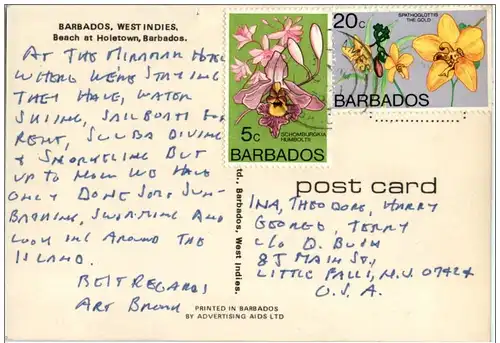 BARBADOS, WEST INDIES.
Beach at Holetown, Barbados.
AT THE MIRAMAR HOTEL
WHERE WE'RE STAYING
THEY HAVE, WATER
SKIING, SAILBOATS FOR
RENT, SCUBA DIVING
& SNORKELING BUT
UP TO NOW WE HAVE
ONLY DONE SOME SUN-
BATHING, SWIMMING AND
LOOKING AROUND THE
ISLAND.
BEST REGARDS
ART
PRINTED IN BARBADOS
BY ADVERTISING AIDS LTD
td., Barbados, West Indies.
5c
SCHOMBURGKIA
HUMBOLTII
BARBADOS
20c
SPATHOGLOTTIS
THE GOLD
BARBADOS
post card
INA, THEODORE, HARRY
GEORGE, TERRY
c/o D. BUSH
85 MAIN ST,
LITTLE FALLS, N.J. 07424
U.S.A.